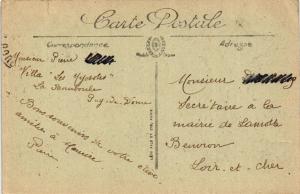 Carte Postale
Correspondance
Adresse
Monsieur Pierre
Villa "Les Myosotis"
La Bourboule
Puy-de-Dôme
Bons souvenirs de votre élève
Pierre
Monsieur
Secrétaire à la
mairie de Lamotte
Beuvron
Loir et Cher